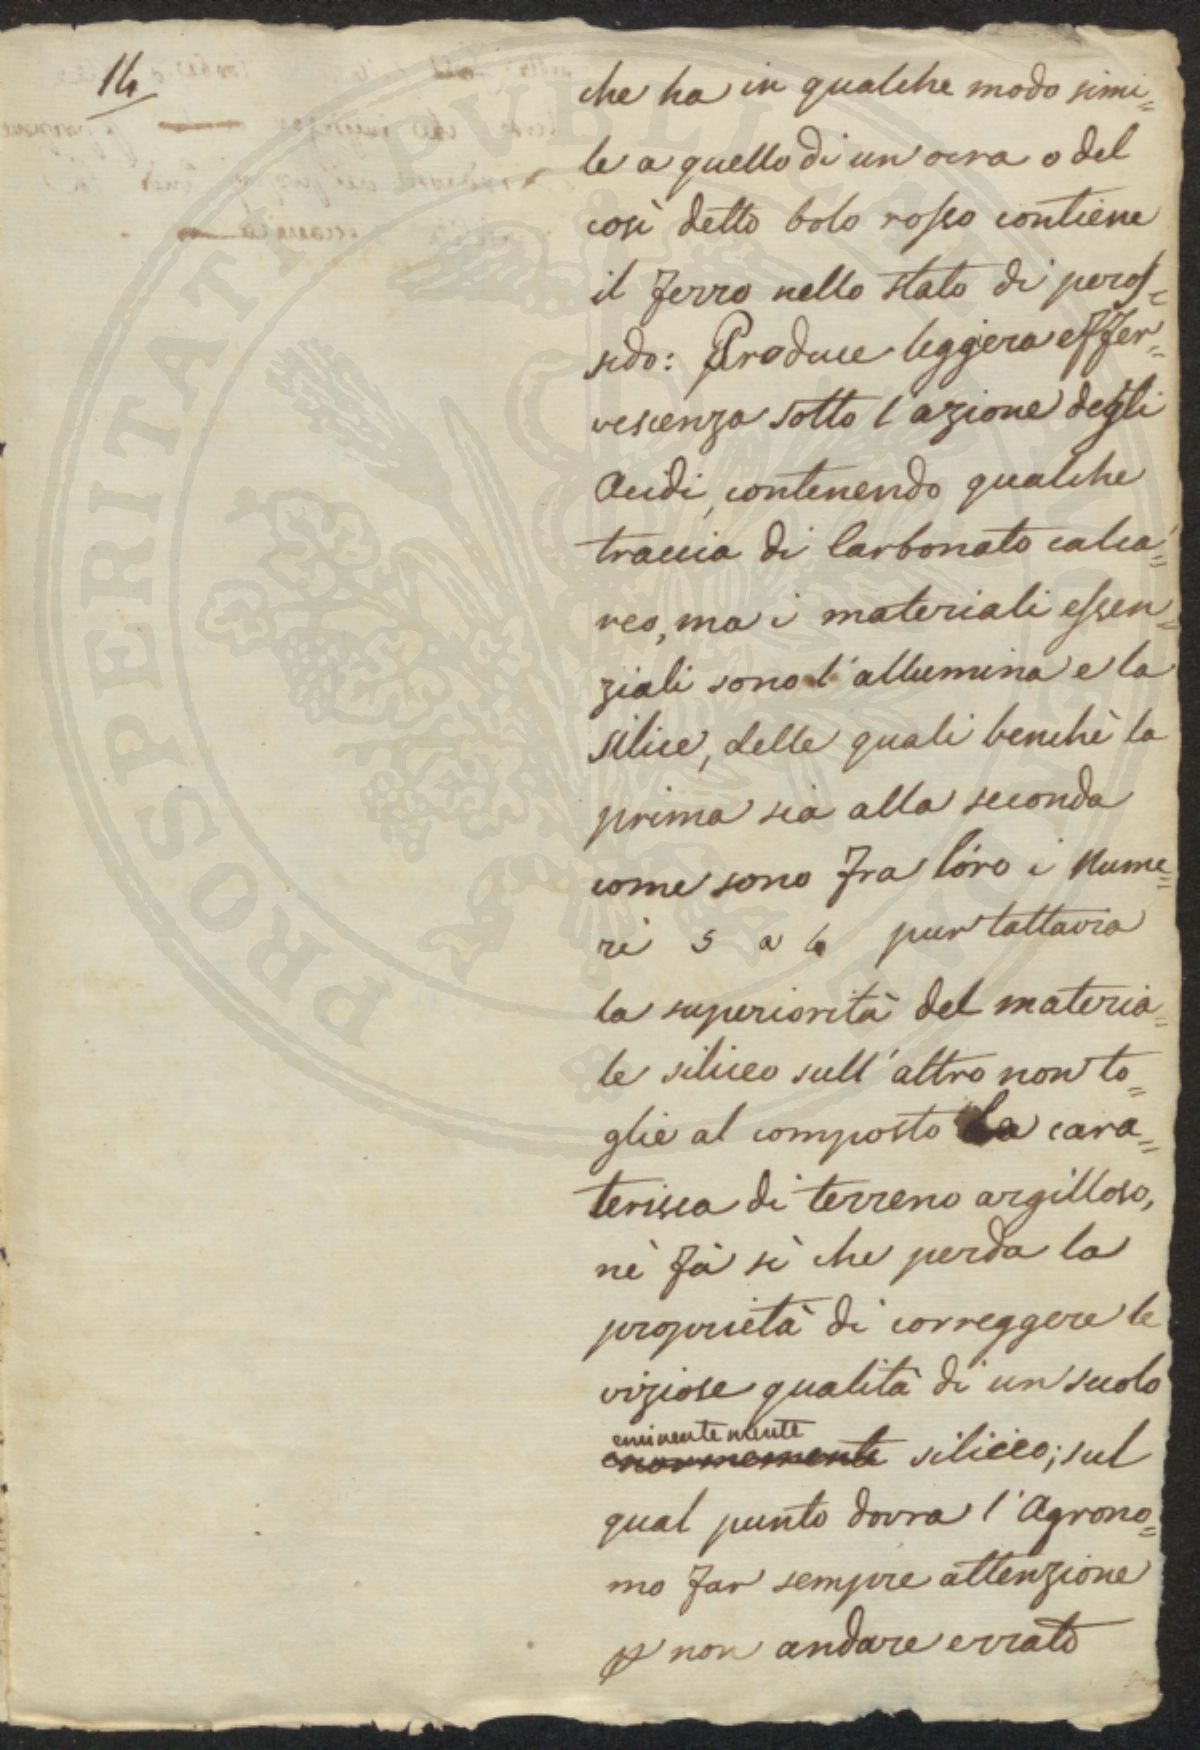 14
che ha in qualche modo simi=
le a quello di un'ocra o del
così detto bolo rosso contiene
il ferro nello stato di peros=
sido: Produce leggera effer=
vescenza sotto l'azione degli
Acidi, contenendo qualche
traccia di Carbonato calca=
reo, ma i materiali essen=
ziali sono l'allumina e la
silice, delle quali benchè la
prima sia alla seconda
come sono fra loro i Nume=
ri 5 a 6 pur tattavia
la superiorità del materia=
le siliceo sull'altro non to=
glie al composto la cara=
terisca di terreno argilloso,
nè fà sì che perda la
proprietà di correggere le
viziose qualità di un suolo
eminentemente
enormemente siliceo; sul
qual punto dovra l'Agrono=
mo far sempre attenzione
p non andare errato
PROSPERITATI PUBLICAE